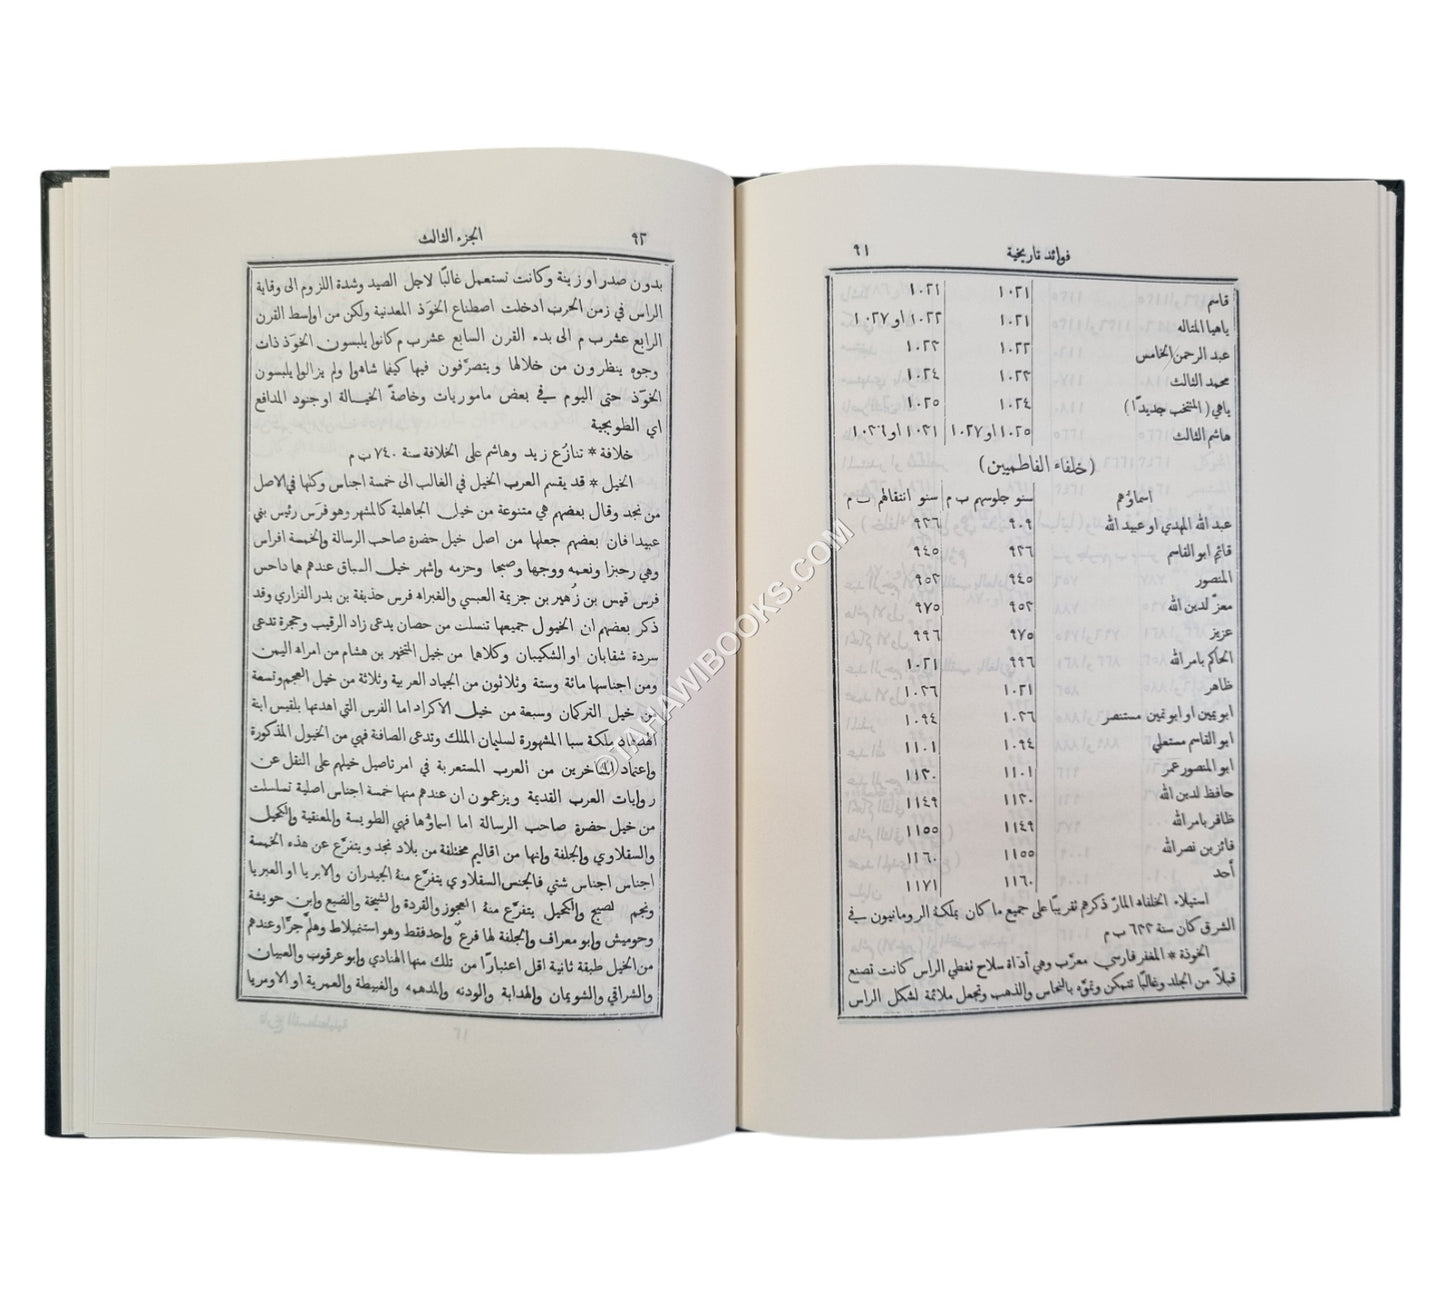 فوائد تاريخية ٩١
قاسم ١٠٢١ ١٠٢١
ياهيا المتاله ١٠٢١ ١٠٢٢ او ١٠٢٧
عبد الرحمن الخامس ١٠٢٢ ١٠٢٢
محمد الثالث ١٠٢٢ ١٠٢٤
ياهي (المنتخب جديدًا) ١٠٢٤ ١٠٢٥
هاشم الثالث ١٠٢٥ او ١٠٢٧ ١٠٢١ او ١٠٢٦
(خلفاء الفاطميين)
اسماؤهم سنو جلوسهم ب م سنو انتقالهم ب م
عبد الله المهدي او عبيد الله ٩٠٩ ٩٢٦
قائم ابو القاسم ٩٢٦ ٩٤٥
المنصور ٩٤٥ ٩٥٢
معزّ لدين الله ٩٥٢ ٩٧٥
عزيز ٩٧٥ ٩٩٦
الحاكم بامر الله ٩٩٦ ١٠٢١
ظاهر ١٠٢١ ١٠٢٦
ابو يمين او ابو تمين مستنصر ١٠٢٦ ١٠٩٤
ابو القاسم مستعلي ١٠٩٤ ١١٠١
ابو المنصور عمر ١١٠١ ١١٢٠
حافظ لدين الله ١١٢٠ ١١٤٩
ظافر بامر الله ١١٤٩ ١١٥٥
فائز بن نصر الله ١١٥٥ ١١٦٠
أحد ١١٦٠ ١١٧١
استيلاء الخلفاء المارّ ذكرهم تقريبًا على جميع ما كان بملكة الرومانيون في
الشرق كان سنة ٦٢٢ ب م
الخوذة * المغفر فارسي معرّب وهي أداة سلاح تغطي الراس كانت تصنع
قبلًا من الجلد وغالبًا تتمكن وتموّه بالنحاس والذهب وتجعل ملائمة لشكل الراس
٩٢ الجزء الثالث
بدون صدر او زينة وكانت تستعمل غالبًا لاجل الصيد وشدة اللزوم الى وقاية
الراس في زمن الحرب ادخلت اصطناع الخوَذ المعدنية ولكن من اواسط القرن
الرابع عشر ب م الى بدء القرن السابع عشر ب م كانوا يلبسون الخوَذ ذات
وجوه ينظرون من خلالها ويتصرّفون فيها كيفما شاهوا ولم يزالوا يلبسون
الخوَذ حتى اليوم في بعض ماموريات وخاصةً الخيالة او جنود المدافع
اي الطوبجية
خلافة * تنازُع زيد وهاشم على الخلافة سنة ٧٤٠ ب م
الخيل * قد يقسم العرب الخيل في الغالب الى خمسة اجناس وكلها في الاصل
من نجد وقال بعضهم هي متنوعة من خيل الجاهلية كالمشهر وهو فرَس رئيس بني
عبيدا فان بعضهم جعلها من اصل خيل حضرة صاحب الرسالة والخمسة افراس
وهي رحبزا ونعمه ووجها وصبحا وحزمه واشهر خيل السباق عندهم هما داحس
فرس قيس بن زُهير بن جزيمة العبسي والغبراه فرس حذيفة بن بدر الفزاري وقد
ذكر بعضهم ان الخيول جميعها تنسلت من حصان يدعى زاد الرقيب وحجرة تدعى
سردة شقابان او الشكيبان وكلاهما من خيل التخير بن هشام من امراه اليمن
ومن اجناسها مائة وستة وثلاثون من الجياد العربية وثلاثة من خيل العجم وتسعة
من خيل التركمان وسبعة من خيل الاكراد اما الفرس التي اهدتها بلقيس ابنة
الهدهاد ملكة سبا المشهورة لسليمان الملك وتدعى الصافنة فهي من الخيول المذكورة
واعتماد المتاخرين من العرب المستعربة في امر تاصيل خيلهم على النقل عن
روايات العرب القديمة ويزعمون ان عندهم منها خمسة اجناس اصلية تسلسلت
من خيل حضرة صاحب الرسالة اما اسماؤها فهي الطويسة والمعنقية والكحيل
والسقلاوي والجلفة وانها من اقاليم مختلفة من بلاد نجد ويتفرّع عن هذه الخمسة
اجناس اجناس شتى فالجنس السقلاوي يتفرّع منهُ الجيدران والابريا او العبريا
ونجم الصبح والكحيل يتفرّع منهُ العجوز والقردة والشيخة والضبع وابن حويشة
وحوميش وابو معراف والجلفة لها فرعٌ واحد فقط وهو استنمبلاط وهلمّ جرًّا وعندهم
من الخيل طبقة ثانية اقل اعتبارًا من تلك منها الهنادي وابو عرقوب والعبيان
والشراقي والشويمان والهدابة والودنه والمدهمه والغبيطة والعمرية او الاومريا
١٢
©TAHAWIBOOKS.COM